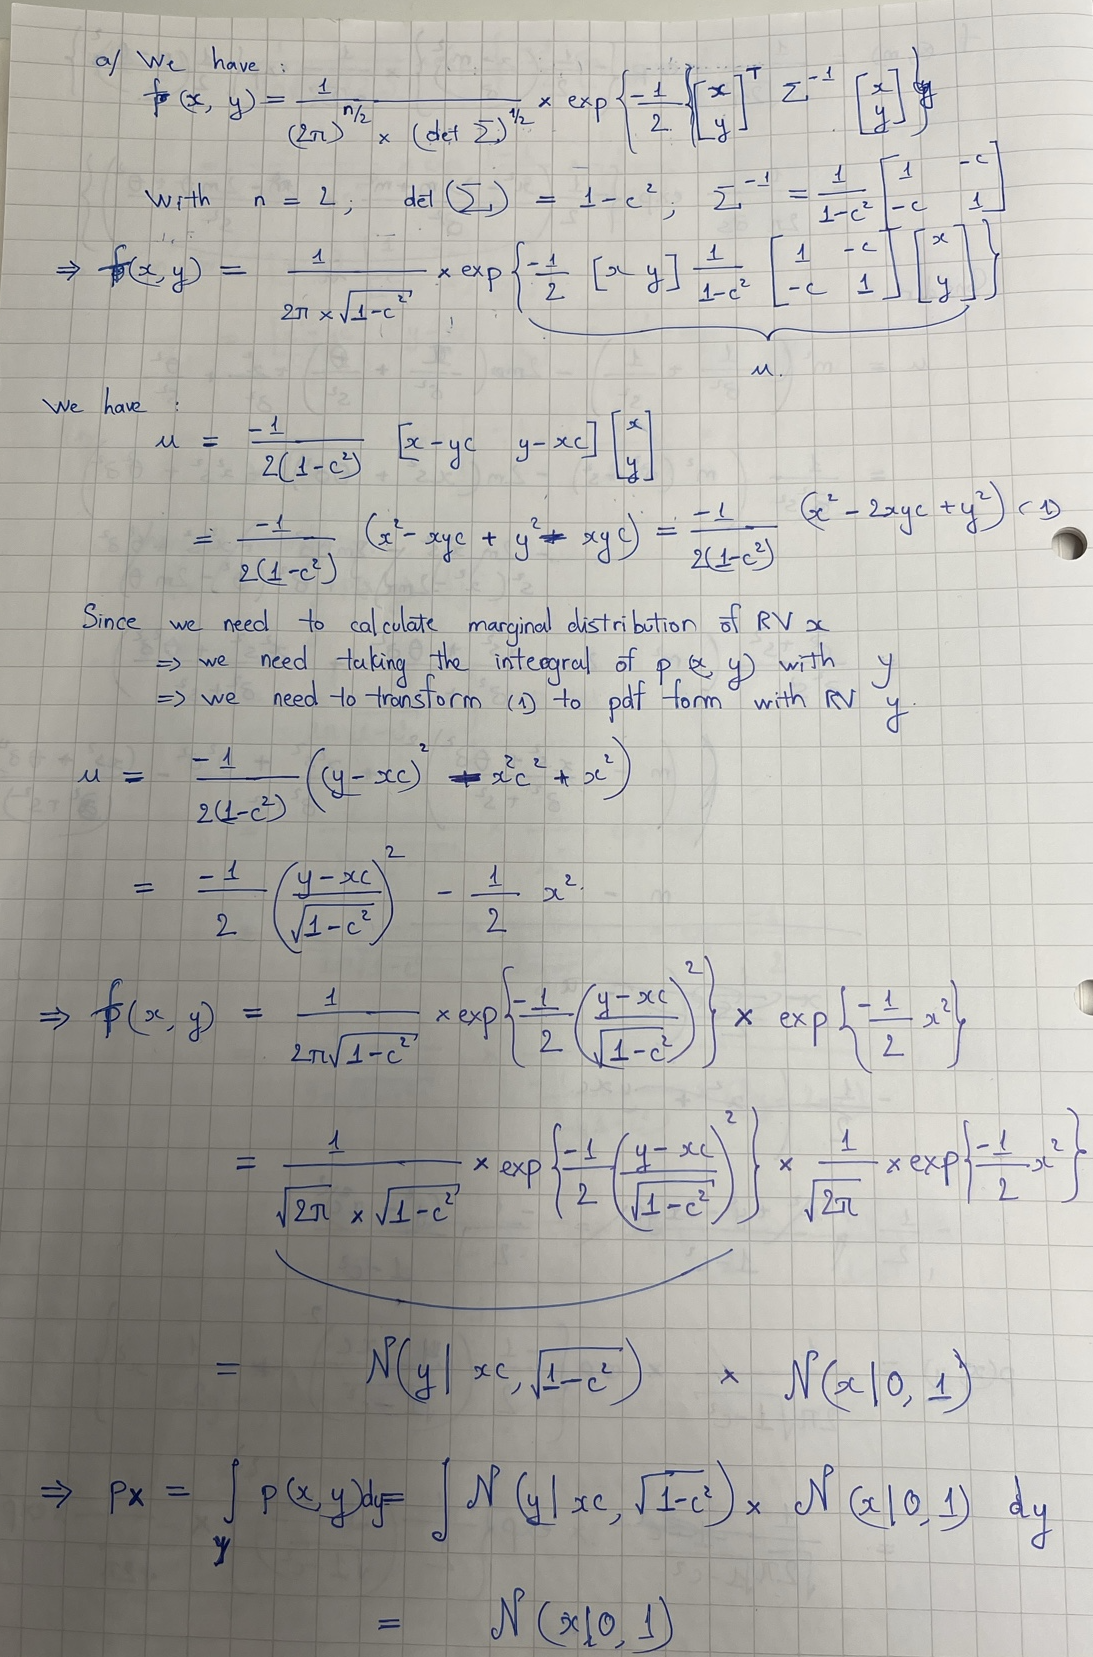 a/ We have :
f(x, y) = 1 / ((2π)^(n/2) × (det Σ)^(1/2)) × exp{ -1/2 {[x y]^T Σ^-1 [x y]}
With n = 2; det(Σ) = 1-c²; Σ^-1 = 1/(1-c²) [1 -c; -c 1]
⇒ f(x, y) = 1/(2π × √(1-c²)) × exp{ -1/2 [x y] 1/(1-c²) [1 -c; -c 1] [x; y] }
u.
We have :
u = -1/(2(1-c²)) [x-yc y-xc] [x; y]
= -1/(2(1-c²)) (x² - xyc + y² - xyc) = -1/(2(1-c²)) (x² - 2xyc + y²) (1)
Since we need to calculate marginal distribution of RV x
⇒ we need taking the inteegral of p(x, y) with y
⇒ we need to transform (1) to pdf form with RV y.
u = -1/(2(1-c²)) ((y-xc)² - x²c² + x²)
= -1/2 ((y-xc)/√(1-c²))² - 1/2 x²
⇒ f(x, y) = 1/(2π√(1-c²)) × exp{ -1/2 ((y-xc)/√(1-c²))² } × exp{ -1/2 x² }
= 1/(√2π × √(1-c²)) × exp{ -1/2 ((y-xc)/√(1-c²))² } × 1/√2π × exp{ -1/2 x² }
= N(y| xc, √(1-c²)) × N(x|0, 1)
⇒ px = ∫_y p(x, y)dy = ∫ N(y| xc, √(1-c²)) × N(x|0, 1) dy
= N(x|0, 1)